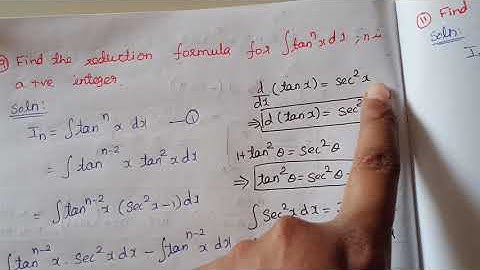 9) Find the reduction formula for ∫tanⁿx dx ; n is
a +ve integer.
Soln:
Iₙ = ∫tanⁿ x dx —①
= ∫tanⁿ⁻² x tan²x dx
= ∫tanⁿ⁻²x (sec²x−1)dx
∫tanⁿ⁻²x · sec²x dx − ∫tanⁿ⁻²x dx
d/dx (tanx) = sec²x
⇒ d(tanx) = sec²
1+tan²θ = sec²θ
⇒ tan²θ = sec²θ −
∫sec²x dx =
11) Find
Soln:
I